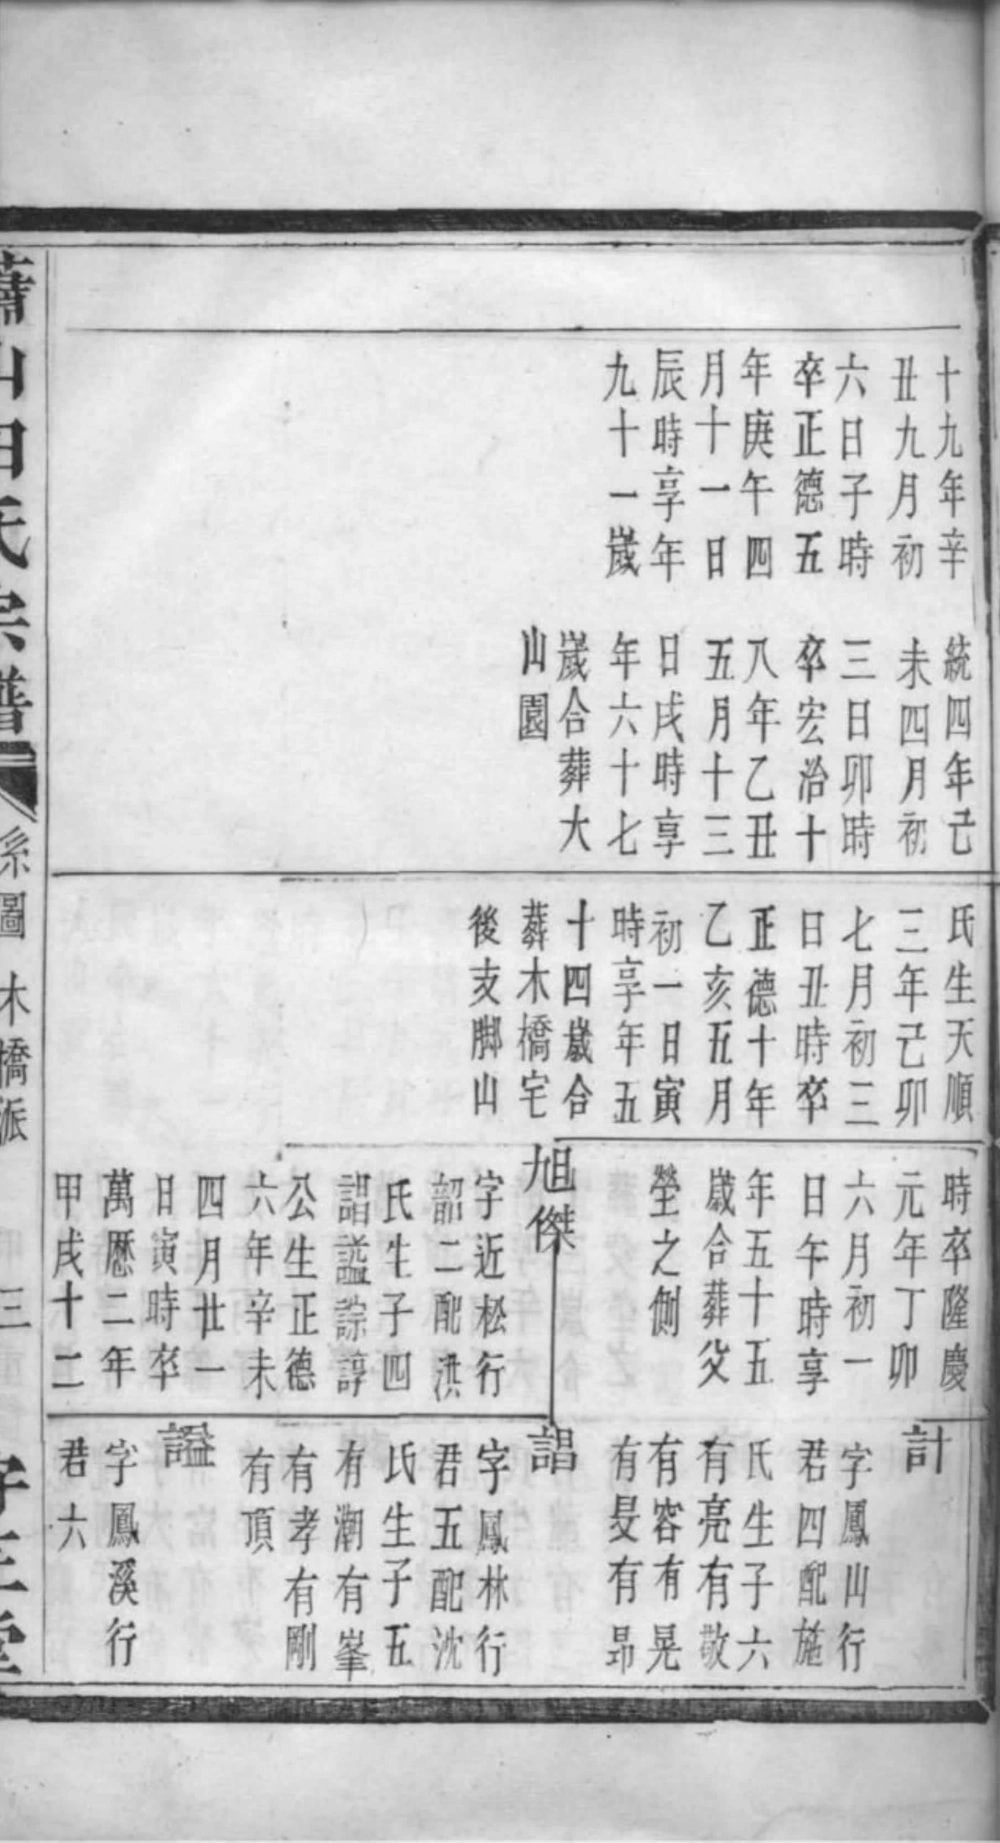 十九年辛
丑九月初
六日子時
卒正德五
年庚午四
月十一日
辰時享年
九十一歲
統四年己
未四月初
三日卯時
卒宏治十
八年乙丑
五月十三
日戌時享
年六十七
歲合葬大
山園
氏生天順
三年己卯
七月初三
日丑時卒
正德十年
乙亥五月
初一日寅
時享年五
十四歲合
葬木橋宅
後支脚山
時卒隆慶
元年丁卯
六月初一
日午時享
年五十五
歲合葬父
塋之側
旭傑
字近松行
韶二配洪
氏生子四
詔謚諒諄
公生正德
六年辛未
四月廿一
日寅時卒
萬厯二年
甲戌十二
計
字鳳山行
君四配施
氏生子六
有亮有敬
有容有晃
有旻有昂
詔
字鳳林行
君五配沈
氏生子五
有潮有峯
有孝有剛
有頂
謚
字鳳溪行
君六
蕭山田氏宗譜
系圖 木橋派
三